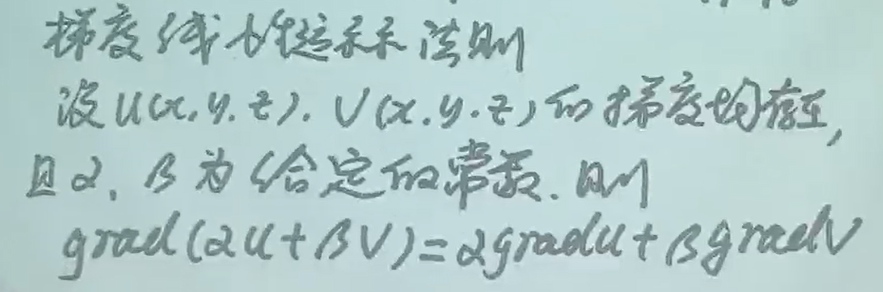 梯度线性运算法则
设u(x,y,z).V(x.y.z)的梯度均存在,
且α、β为给定的常数.则
grad(αu+βV)=αgradu+βgradV